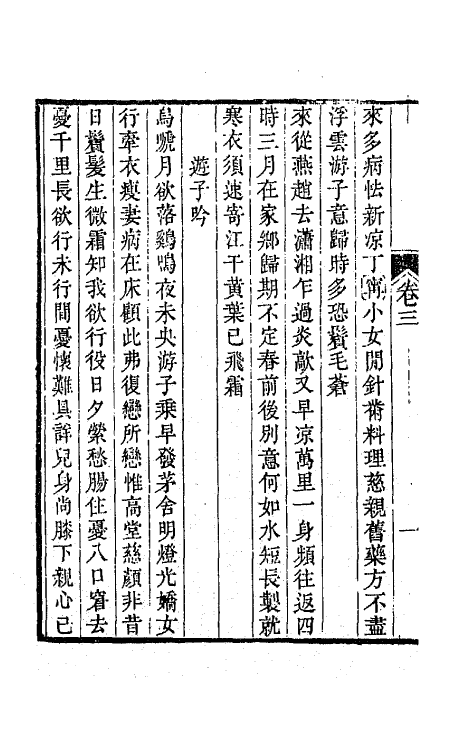 卷三
一
來多病怯新凉丁甯小女閒針黹料理慈親舊藥方不盡
浮雲游子意歸時多恐鬢毛蒼
來從燕趙去瀟湘乍過炎敲又早凉萬里一身頻往返四
時三月在家鄉歸期不定春前後別意何如水短長製就
寒衣須速寄江干黃葉已飛霜
遊子吟
烏嗁月欲落鷄鳴夜未央游子乘早發茅舍明燈光嬌女
行牽衣瘦妻病在床顧此弗復戀所戀惟高堂慈顏非昔
日鬢髮生微霜知我欲行役日夕縈愁腸住憂八口窘去
憂千里長欲行未行間憂懷難具詳兒身尚膝下親心已